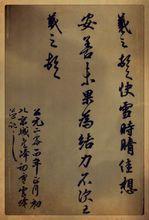 羲之頓首快雪時晴佳想
安善未果為結力不次王
羲之頓首
公元二零一四年正月初
北京城